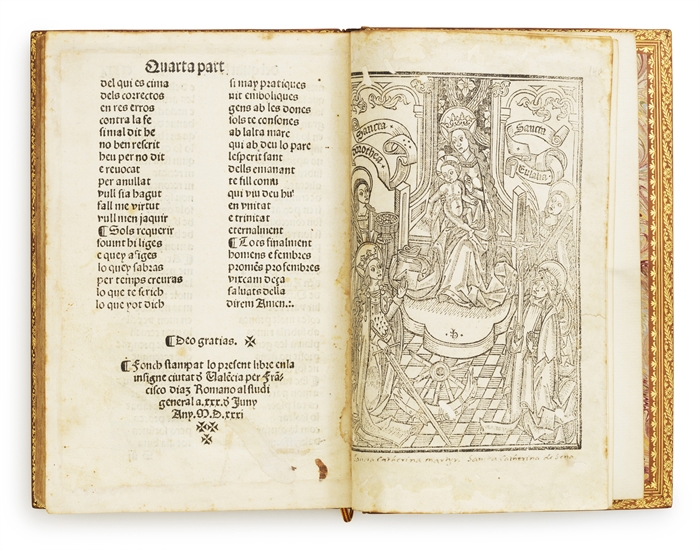 Quarta part
del qui es cima
dels correctos
en res erros
contra la fe
si mal dit he
no ben rescrit
heu per no dit
e reuocat
per anullat
vull sia hagut
fall me virtut
vull men jaquir
¶ Sols requerir
souint hi liges
e que y afiges
lo que y sabras
per temps creuras
lo que te scrich
lo que yot dich
si may pratiques
vit emboliques
gens ab les dones
sols te consones
ab lalta mare
qui ab deu lo pare
lesperit sant
dells emanant
te fill comu
qui viu deu hu
en vnitat
e trinitat
eternalment
¶ Tots finalment
homens e fembres
promēs prosembres
vixcam deça
saluats della
direm Amen.:.
¶ Deo gratias. ✠
¶ Fonch stampat lo present libre enla
insigne ciutat ð Ualēcia per Frā-
cisco diaz Romano al studi
general a.xxx.ð Juny
Any.M.D.xxxi
Sancta
dorothea
Sancta
Eulalia
Catherina martyr Sancta Catherina de Sena